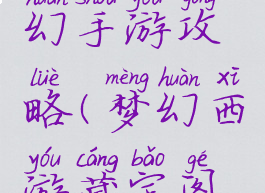 huàn shǒu yóu gōng
幻手游攻
lüè mèng huàn xī
略(梦幻西
yóu cáng bǎo gé
游藏宝阁